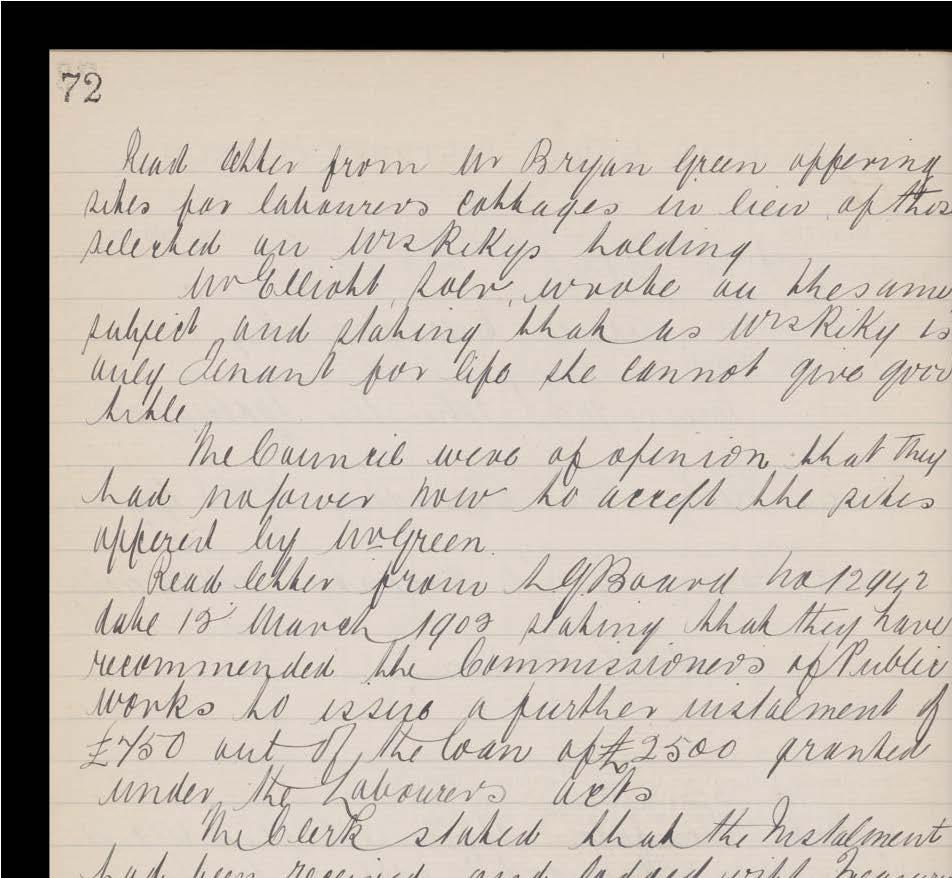 72
Read letter from Mr Bryan Green offering
sites for labourers cottages in lieu of those
selected on Mrs Rikys holding
Mr Elliott, Solr, wrote on the same
subject and stating that as Mrs Riky is
only Tenant for life she cannot give good
title
The Council were of opinion that they
had no power now to accept the sites
offered by Mr Green.
Read letter from LGBoard No 12942
date 12 March 1903 stating that they have
recommended the Commissioners of Public
Works to issue a further instalment of
£750 out of the loan of £2500 granted
under the Labourers acts
The Clerk stated that the Instalment
had been received and lodged with